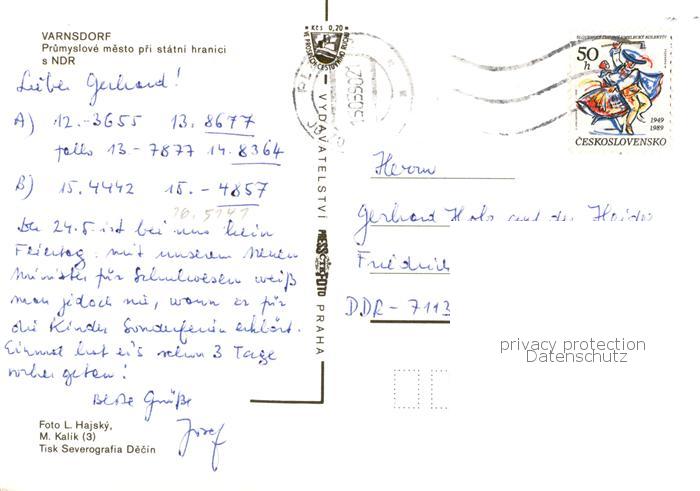 VARNSDORF
Průmyslové město při státní hranici
s NDR
Lieber Gerhard!
A) 12.-3655 13. 8677
falls 13-7877 14. 8364
B) 15.4442 15.-4857
16.5141
Der 24.5. ist bei uns kein
Feiertag, mit unserem neuen
Minister für Schulwesen weiß
man jedoch nie, wann er für
die Kinder Sonderferien erklärt.
Einmal hat er's schon 3 Tage
vorher getan!
Beste Grüße
Josef
Foto L. Hajský,
M. Kalík (3)
Tisk Severografia Děčín
Kčs 0,20
VYDAVATELSTVÍ
PRESSFOTO
PRAHA
50 h
1949
1989
ČESKOSLOVENSKO
Herrn
Gerhard
Friedrich
DDR-7113
privacy protection
Datenschutz